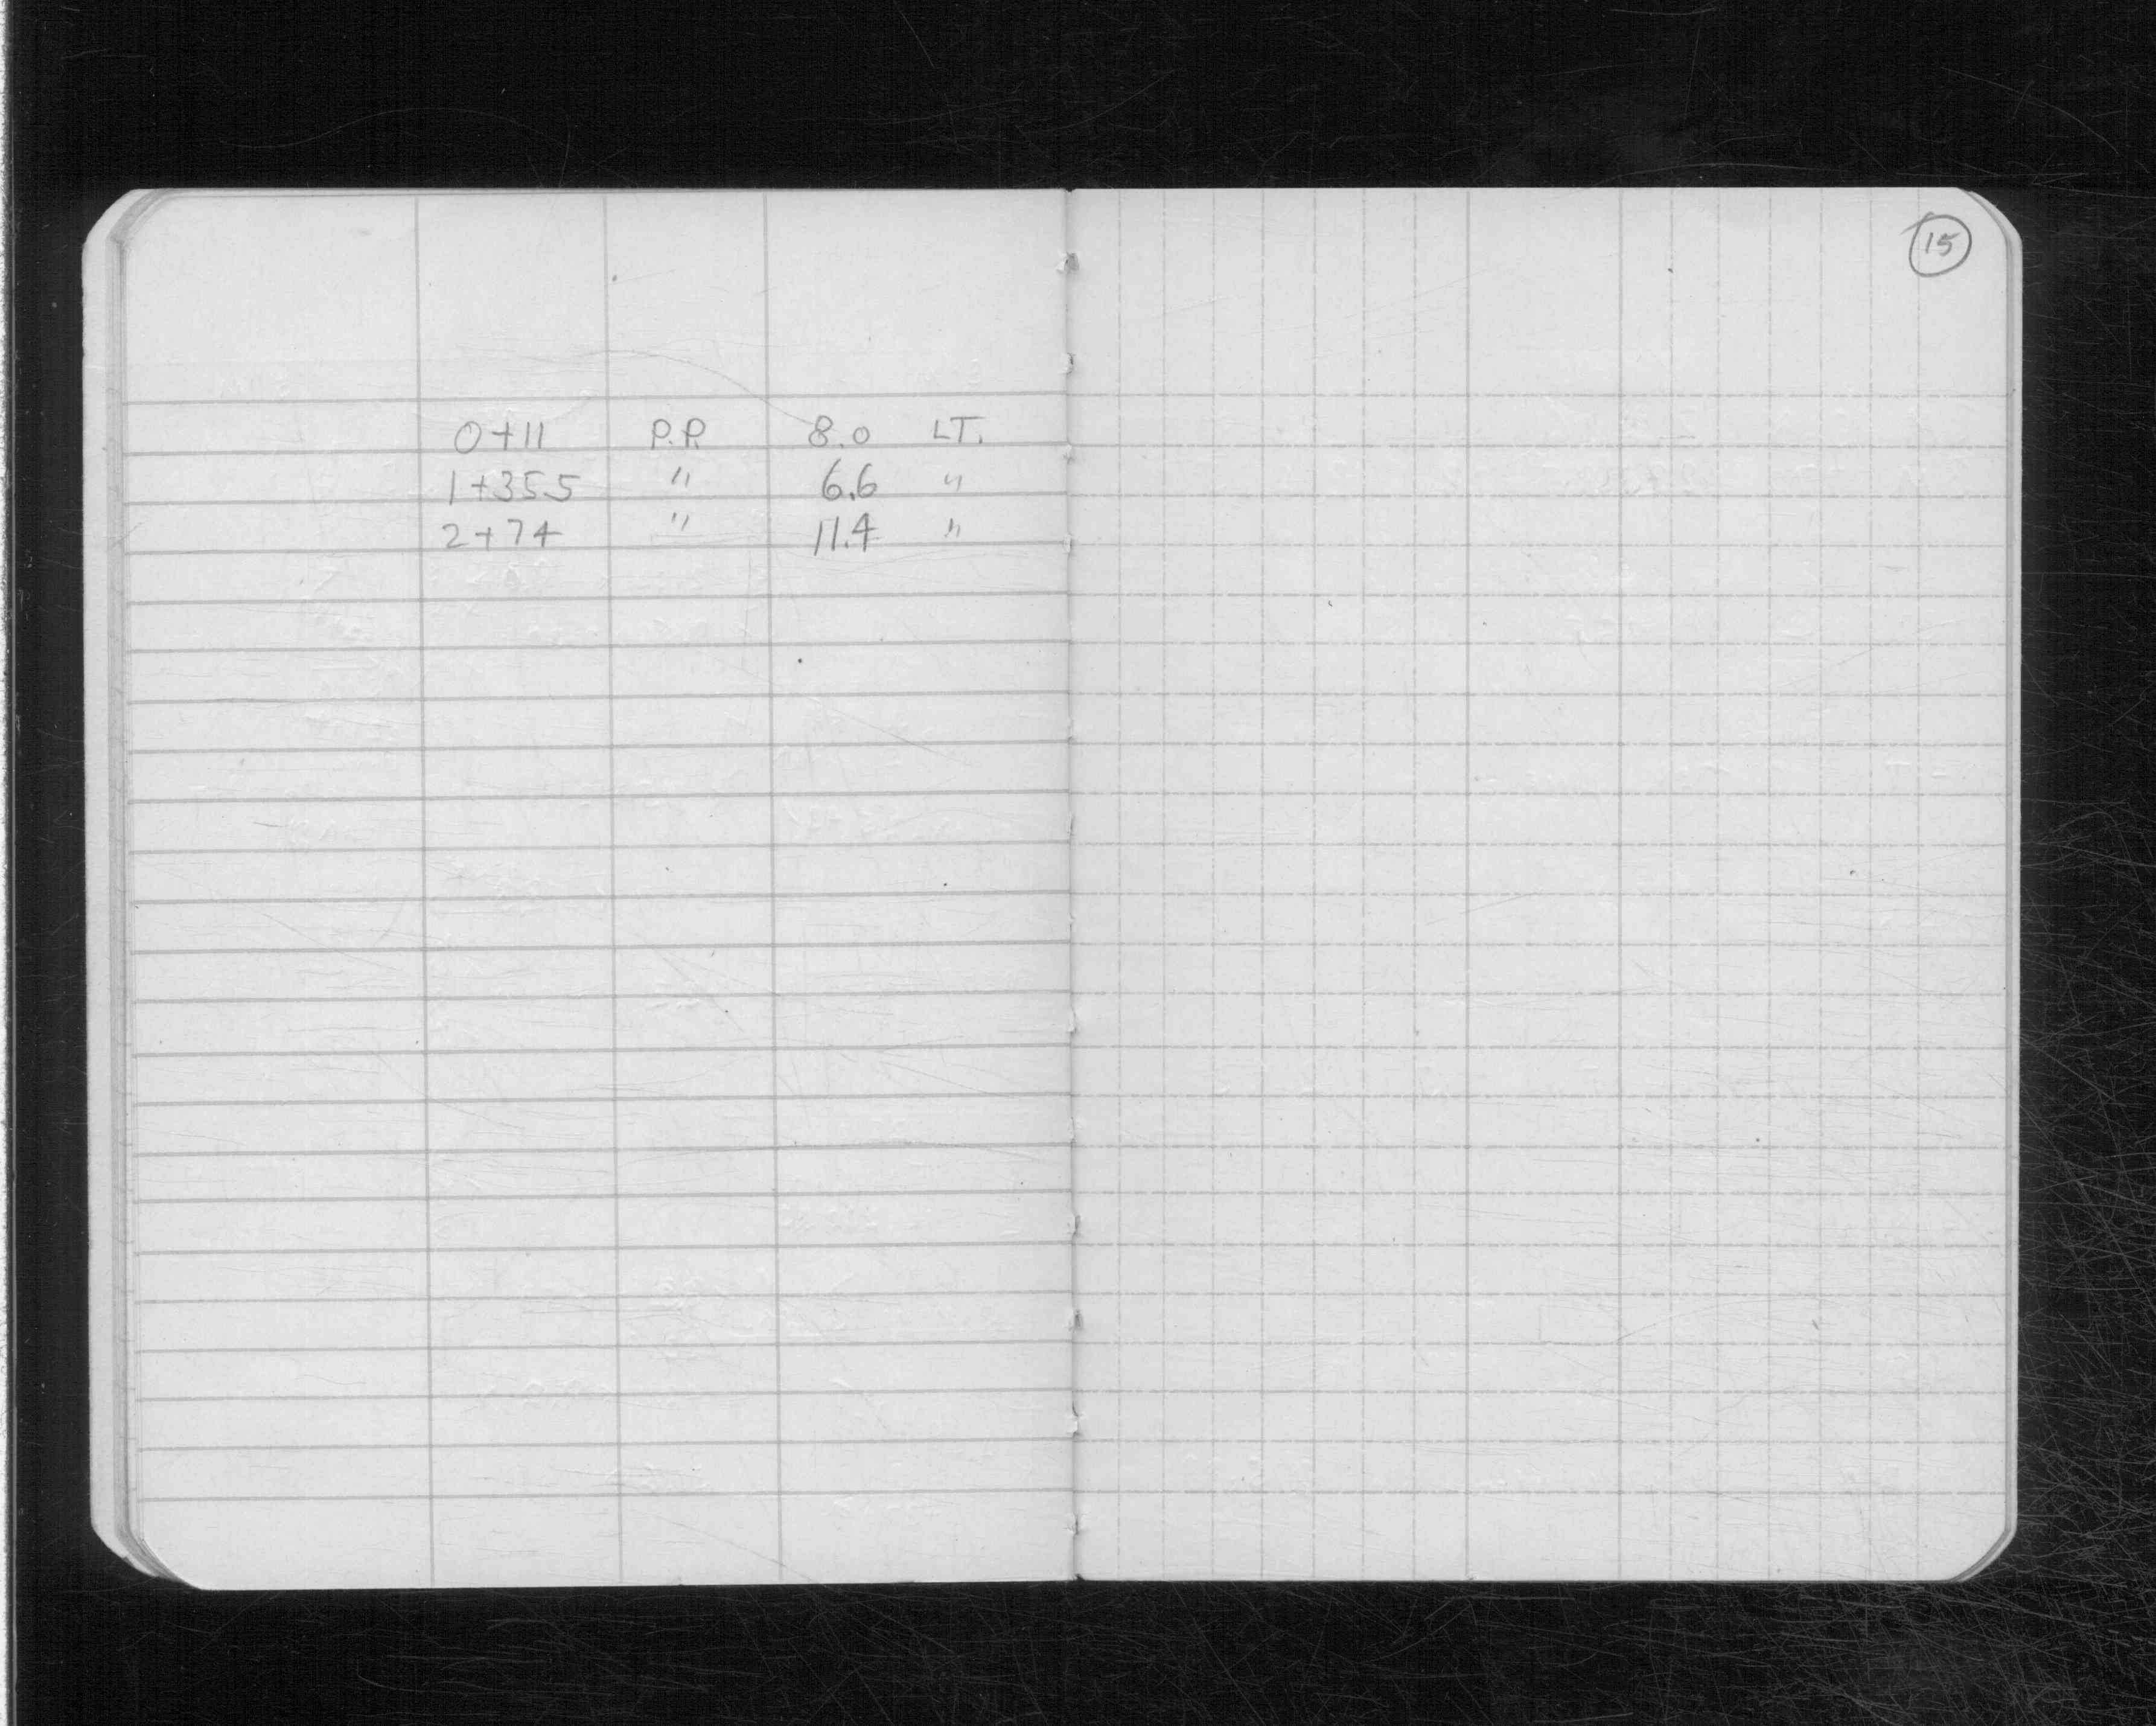 15
0+11 P.P. 8.0 LT.
1+35.5 " 6.6 "
2+74 " 11.4 "